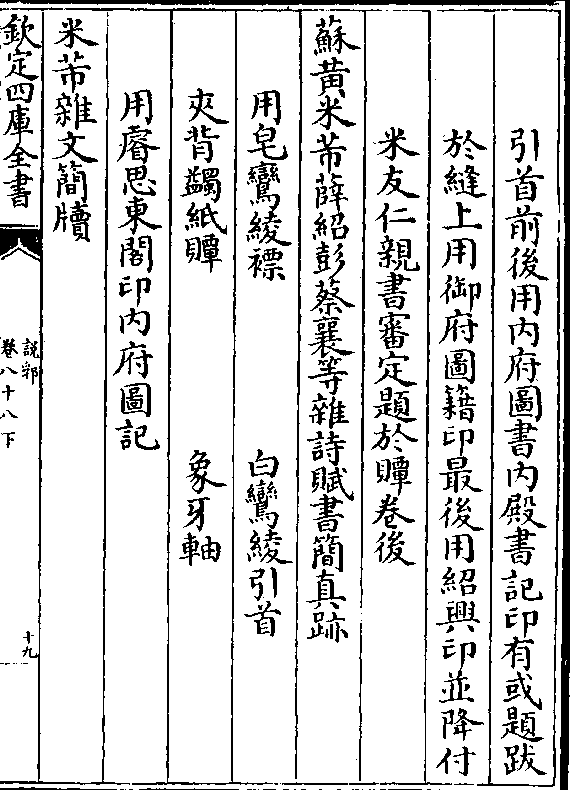 引首前後用内府圖書内殿書記印有或題跋
於縫上用御府圖籍印最後用紹興印並降付
米友仁親書審定題於贉卷後
蘇黄米芾薛紹彭蔡襄等雜詩賦書簡真跡
用皂鸞綾褾　白鸞綾引首
夾背蠲紙贉　象牙軸
用睿思東閣印内府圖記
米芾雜文簡牘
欽定四庫全書
說郛
卷八十八下
十九